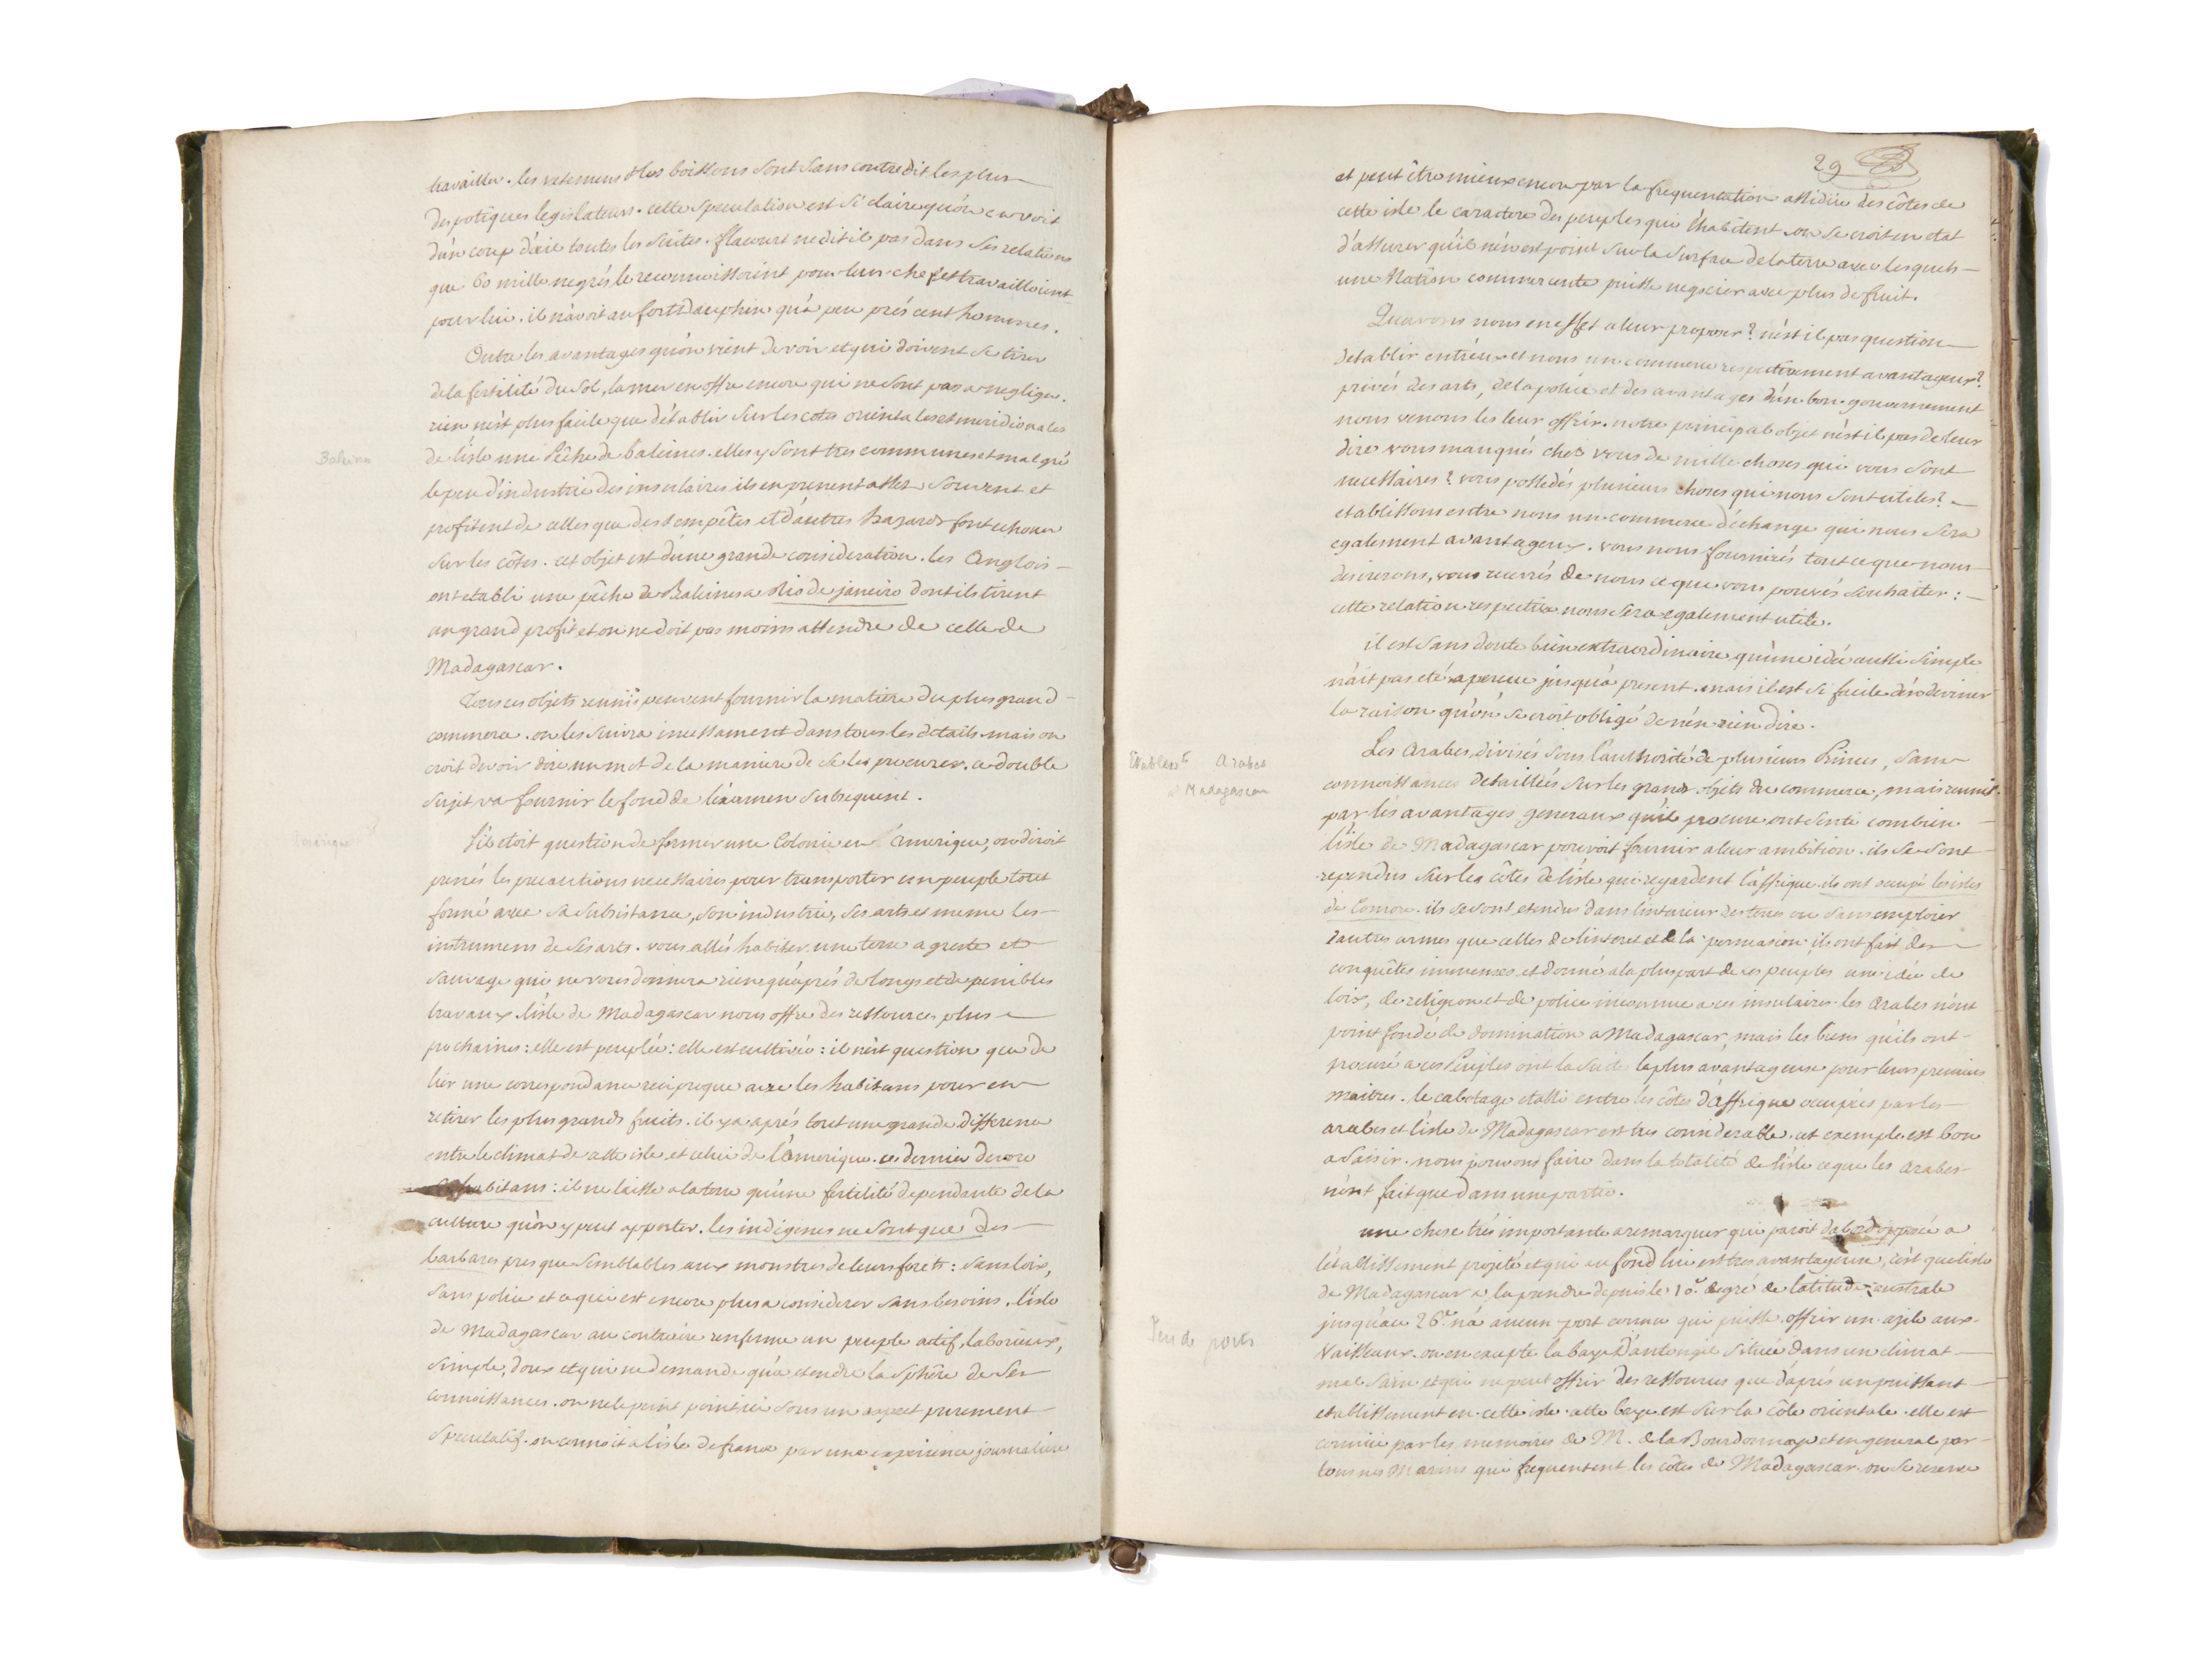 travailler. les vetemens et les boissons sont sans contredit les plus
despotiques legislateurs. cette speculation est si claire qu'on en voit
d'un coup d'œil toutes les suites. flacourt ne dit il pas dans ses relations
que 60 mille negrés le reconnoissoient pour leur chef et travailloient
pour lui. il n'avoit au fort Dauphin qu'a peu prés cent hommes.
Outre les avantages qu'on vient de voir et qui doivent se tirer
de la fertilité du sol, la mer en offre encore qui ne sont pas a negliger.
rien n'est plus facile que d'établir sur les cotes orientales et meridionales
Baleines
de l'isle une Pêche de baleines. elles y sont tres communes et malgré
le peu d'industrie des insulaires ils en prenent assez souvent et
profitent de celles que des tempêtes et d'autres hazards font echouer
sur les côtes. cet objet est d'une grande consideration. les Anglois
ont etabli une pêche de Baleines a Rio de janeiro dont ils tirent
un grand profit et on ne doit pas moins attendre de celle de
Madagascar.
Tous ces objets reunis peuvent fournir la matiere du plus grand
commerce. on les suivra incessament dans tous les details. mais on
croit devoir dire un mot de la maniere de se les procurer. ce double
sujet va fournir le fond de l'éxamen subsequent.
S'il etoit question de former une Colonie en Amerique, on diroit
prenés les precautions necessaires pour transporter un peuple tout
formé avec sa subsistance, son industrie, ses arts et meme les
instrumens de ses arts. vous allés habiter une terre agreste et
sauvage qui ne vous donnera rien qu'aprés de longs et de penibles
travaux. l'isle de Madagascar nous offre des ressources plus
prochaines: elle est peuplée: elle est cultivée: il n'est question que de
lier une correspondance reciproque avec les habitans pour en
retirer les plus grands fruits. il y a aprés tout une grande difference
entre le climat de cette isle et celui de l'Amerique. ce dernier devore
ses habitans: il ne laisse a la terre qu'une fertilité dependante de la
culture qu'on y peut apporter. les indigenes ne sont que des
barbares presque semblables aux monstres de leurs forets: sans loix,
sans police et ce qui est encore plus a considerer sans besoins. l'isle
de Madagascar au contraire renferme un peuple actif, laborieux,
simple, doux et qui ne demande qu'a etendre la sphêre de ses
connoissances. on ne le peint point ici sous un aspect purement
speculatif. on connoit a l'isle de france par une experience journaliere
29
et peut être mieux encore par la frequentation assidüe des côtes de
cette isle le caractere des peuples qui l'habitent. on se croit en etat
d'assurer qu'il n'en est point sur la surface de la terre avec lesquels
une Nation commercante puisse negocier avec plus de fruit.
Qu'avons nous en effet a leur proposer? n'est il pas question
d'etablir entr'eux et nous un commerce respectivement avantageux?
privés des arts, de la police et des avantages d'un bon gouvernement
nous venons les leur offrir. notre principal objet n'est il pas de leur
dire vous manqués chez vous de mille choses qui vous sont
necessaires? vous possedés plusieurs choses qui nous sont utiles?
etablissons entre nous un commerce d'échange qui nous sera
egalement avantageux. vous nous fournirés tout ce que nous
desirerons, vous recevrés de nous ce que vous pouvés souhaiter:
cette relation respective nous sera egalement utile.
il est sans doute bien extraordinaire qu'une idée aussi simple
n'ait pas eté aperceue jusqu'a present. mais il est si facile d'en deviner
la raison qu'on se croit obligé de n'en rien dire.
Etablenᵗˢ Arabes
a Madagascar
Les Arabes, divisés sous l'authorité de plusieurs Princes, sans
connoissances detaillées sur les grands objets du commerce, mais reunis
par les avantages generaux qu'il procure ont senti combien
l'isle de Madagascar pouvoit fournir a leur ambition. ils se sont
rependus sur les côtes de l'isle qui regardent l'affrique. ils ont occupé les isles
de Comore. ils se sont etendus dans l'interieur des terres ou sans emploier
d'autres armes que celles de l'interet et de la persuasion ils ont fait des
conquêtes immenses, et donné a la pluspart de ces peuples une idée de
loix, de religion et de police inconnue a ces insulaires. les Arabes n'ont
point fondé de domination a Madagascar, mais les biens qu'ils ont
procuré a ces Peuples ont la suite la plus avantageuse pour leurs premiers
maitres. le cabotage etabli entre les côtes d'affrique occupées par les
arabes et l'isle de Madagascar est tres considerable. cet exemple est bon
a saisir. nous pouvons faire dans la totalité de l'isle ce que les Arabes
n'ont fait que dans une partie.
une chose trés importante a remarquer qui paroit d'abord opposée a
l'établissement projeté et qui au fond lui est tres avantageuse, c'est que l'isle
de Madagascar a la prendre depuis le 10ᵉ degré de latitude australe
Peu de ports
jusqu'au 26ᵉ n'a aucun port connu qui puisse offrir un azile aux
Vaisseaux. on en excepte la baye d'Antongil située dans un climat
mal sain et qui ne peut offrir des ressources que d'aprés un puissant
etablissement en cette isle. cette baye est sur la côte orientale. elle est
connüe par les memoires de M. de la Bourdonnaye et en general par
tous nos Marins qui frequentent les côtes de Madagascar. on se reserve